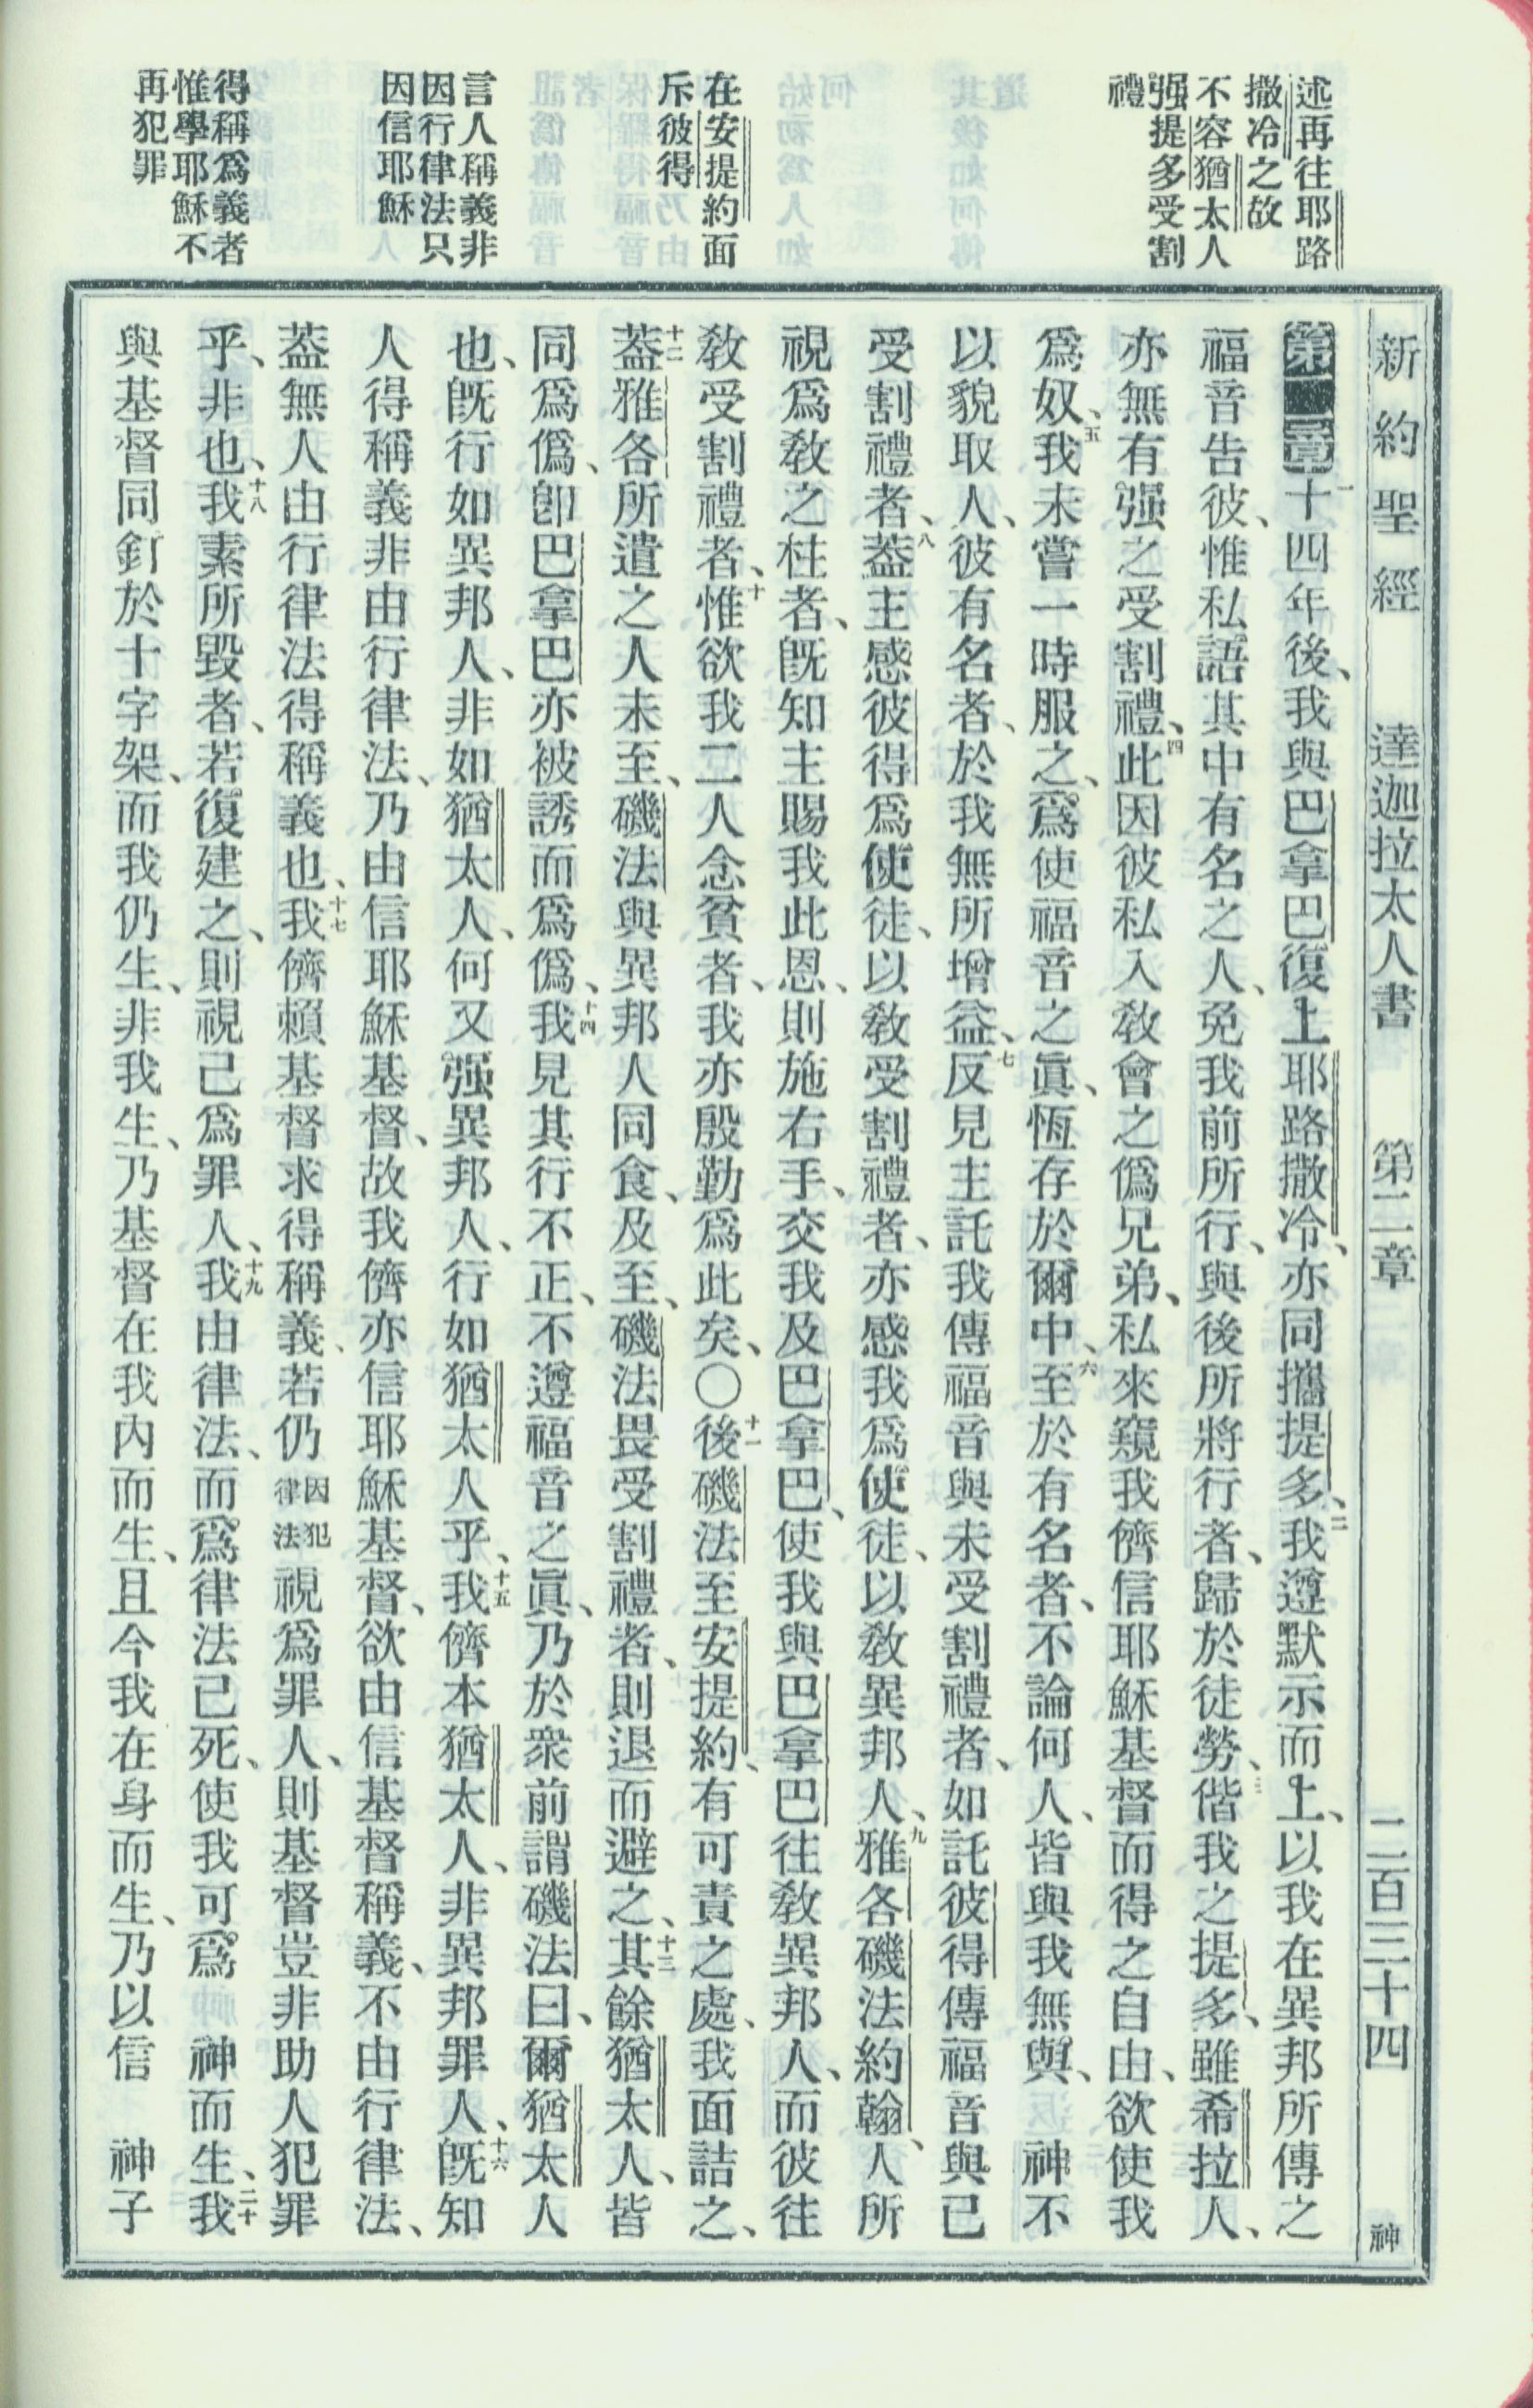 新約聖經　達迦拉太人書　第二章　二百三十四　神
述再往耶路
撒冷之故
不容猶太人
强提多受割
禮
在安提約面
斥彼得
言人稱義非
因行律法只
因信耶穌
得稱爲義者
惟學耶穌不
再犯罪
第二章一十四年後、我與巴拿巴復上耶路撒冷、亦同攜提多、二我遵默示而上、以我在異邦所傳之
福音告彼、惟私語其中有名之人、免我前所行、與後所將行者、歸於徒勞、三偕我之提多、雖希拉人、
亦無有强之受割禮、四此因彼私入敎會之僞兄弟、私來窺我儕信耶穌基督而得之自由、欲使我
爲奴、五我未嘗一時服之、爲使福音之眞、恆存於爾中、六至於有名者、不論何人、皆與我無與、　神不
以貌取人、彼有名者、於我無所增益、七反見主託我傳福音與未受割禮者、如託彼得傳福音與已
受割禮者、八蓋主感彼得爲使徒、以敎受割禮者、亦感我爲使徒、以敎異邦人、九雅各磯法約翰、人所
視爲敎之柱者、旣知主賜我此恩、則施右手、交我及巴拿巴、使我與巴拿巴往敎異邦人、而彼往
敎受割禮者、十惟欲我二人念貧者、我亦殷勤爲此矣、〇十一後磯法至安提約、有可責之處、我面詰之、
十二蓋雅各所遣之人未至、磯法與異邦人同食、及至、磯法畏受割禮者、則退而避之、十三其餘猶太人、皆
同爲僞、卽巴拿巴亦被誘而爲僞、十四我見其行不正、不遵福音之眞、乃於衆前謂磯法曰、爾猶太人
也、旣行如異邦人、非如猶太人、何又强異邦人、行如猶太人乎、十五我儕本猶太人、非異邦罪人、十六旣知
人得稱義非由行律法、乃由信耶穌基督、故我儕亦信耶穌基督、欲由信基督稱義、不由行律法、
蓋無人由行律法得稱義也、十七我儕賴基督求得稱義、若仍因犯律法視爲罪人、則基督豈非助人犯罪
乎、非也、十八我素所毀者、若復建之、則視己爲罪人、十九我由律法、而爲律法已死、使我可爲　神而生、二十我
與基督同釘於十字架、而我仍生、非我生、乃基督在我內而生、且今我在身而生、乃以信　神子